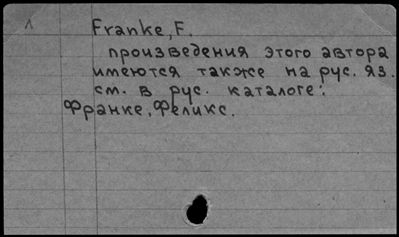 Franke, F.
произведения этого автора
имеются также на рус. яз.
см. в рус. каталоге:
Франке, Феликс.